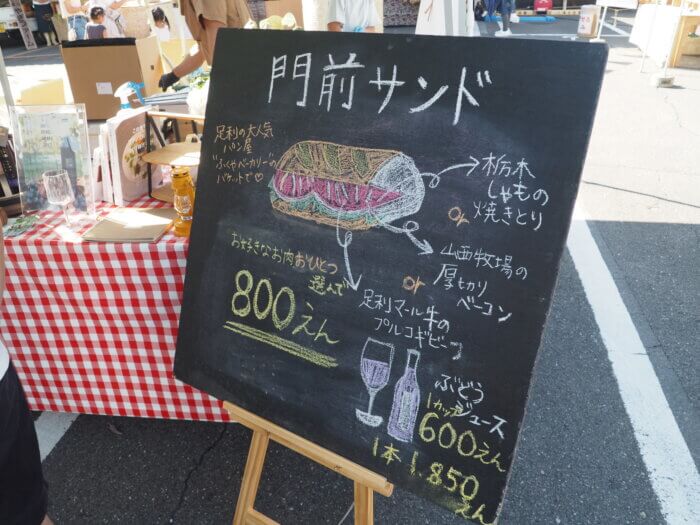 門前サンド
足利の大人気
パン屋
"ふくやベーカリー"の
バケットで♡
栃木
しゃもの
焼きとり
or
山西牧場の
厚切り
ベーコン
or
足利マール牛の
プルコギビーフ
お好きなお肉おひとつ
選んで
800えん
ぶどう
ジュース
1カップ
600えん
1本 1,850
えん